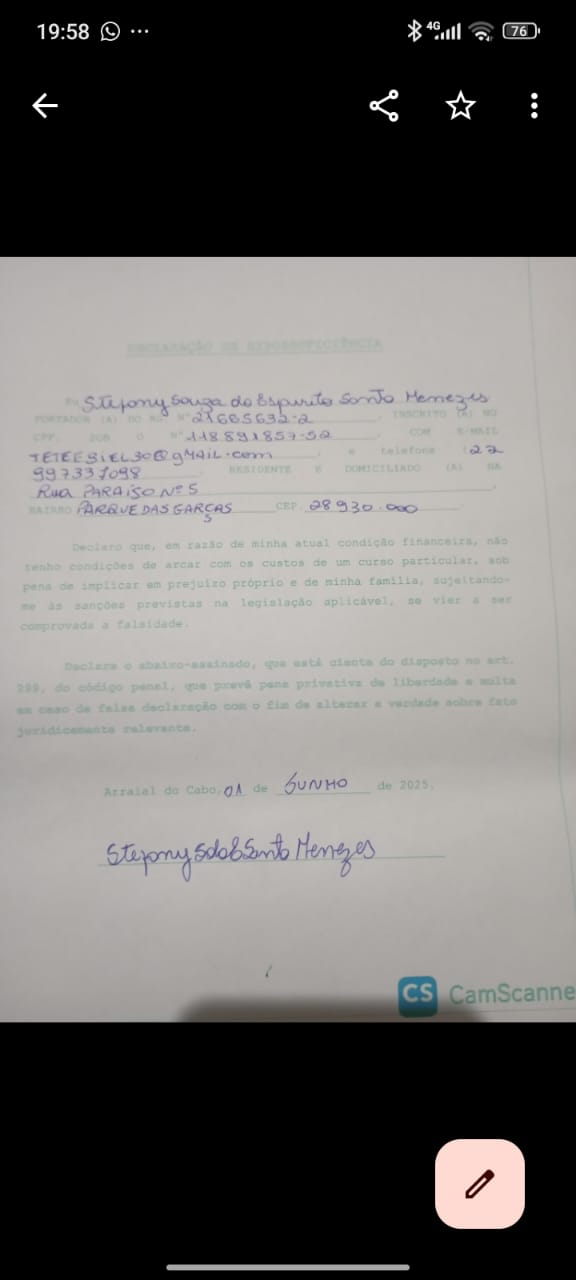 19:58
4G
76
DECLARAÇÃO DE HIPOSSUFICIÊNCIA
Eu Stefany Souza do Espirito Santo Menezes
PORTADOR (A) DO RG. N° 21665632-2, INSCRITO (A) NO
CPF. SOB O N° 118.891857-52 COM E-MAIL
TETEESIEL30@gMAIL.com e telefone 22
997337098 RESIDENTE E DOMICILIADO (A) NA
Rua PARAISO Nº 5
BAIRRO PARQUE DAS GARÇAS CEP. 28930.000
Declaro que, em razão de minha atual condição financeira, não
tenho condições de arcar com os custos de um curso particular, sob
pena de implicar em prejuízo próprio e de minha família, sujeitando-
me às sanções previstas na legislação aplicável, se vier a ser
comprovada a falsidade.
Declara o abaixo-assinado, que está ciente do disposto no art.
299, do código penal, que prevê pena privativa de liberdade e multa
em caso de falsa declaração com o fim de alterar a verdade sobre fato
juridicamente relevante.
Arraial do Cabo, 01 de JUNHO de 2025.
Stefany S do E Santo Menezes
CS CamScanne